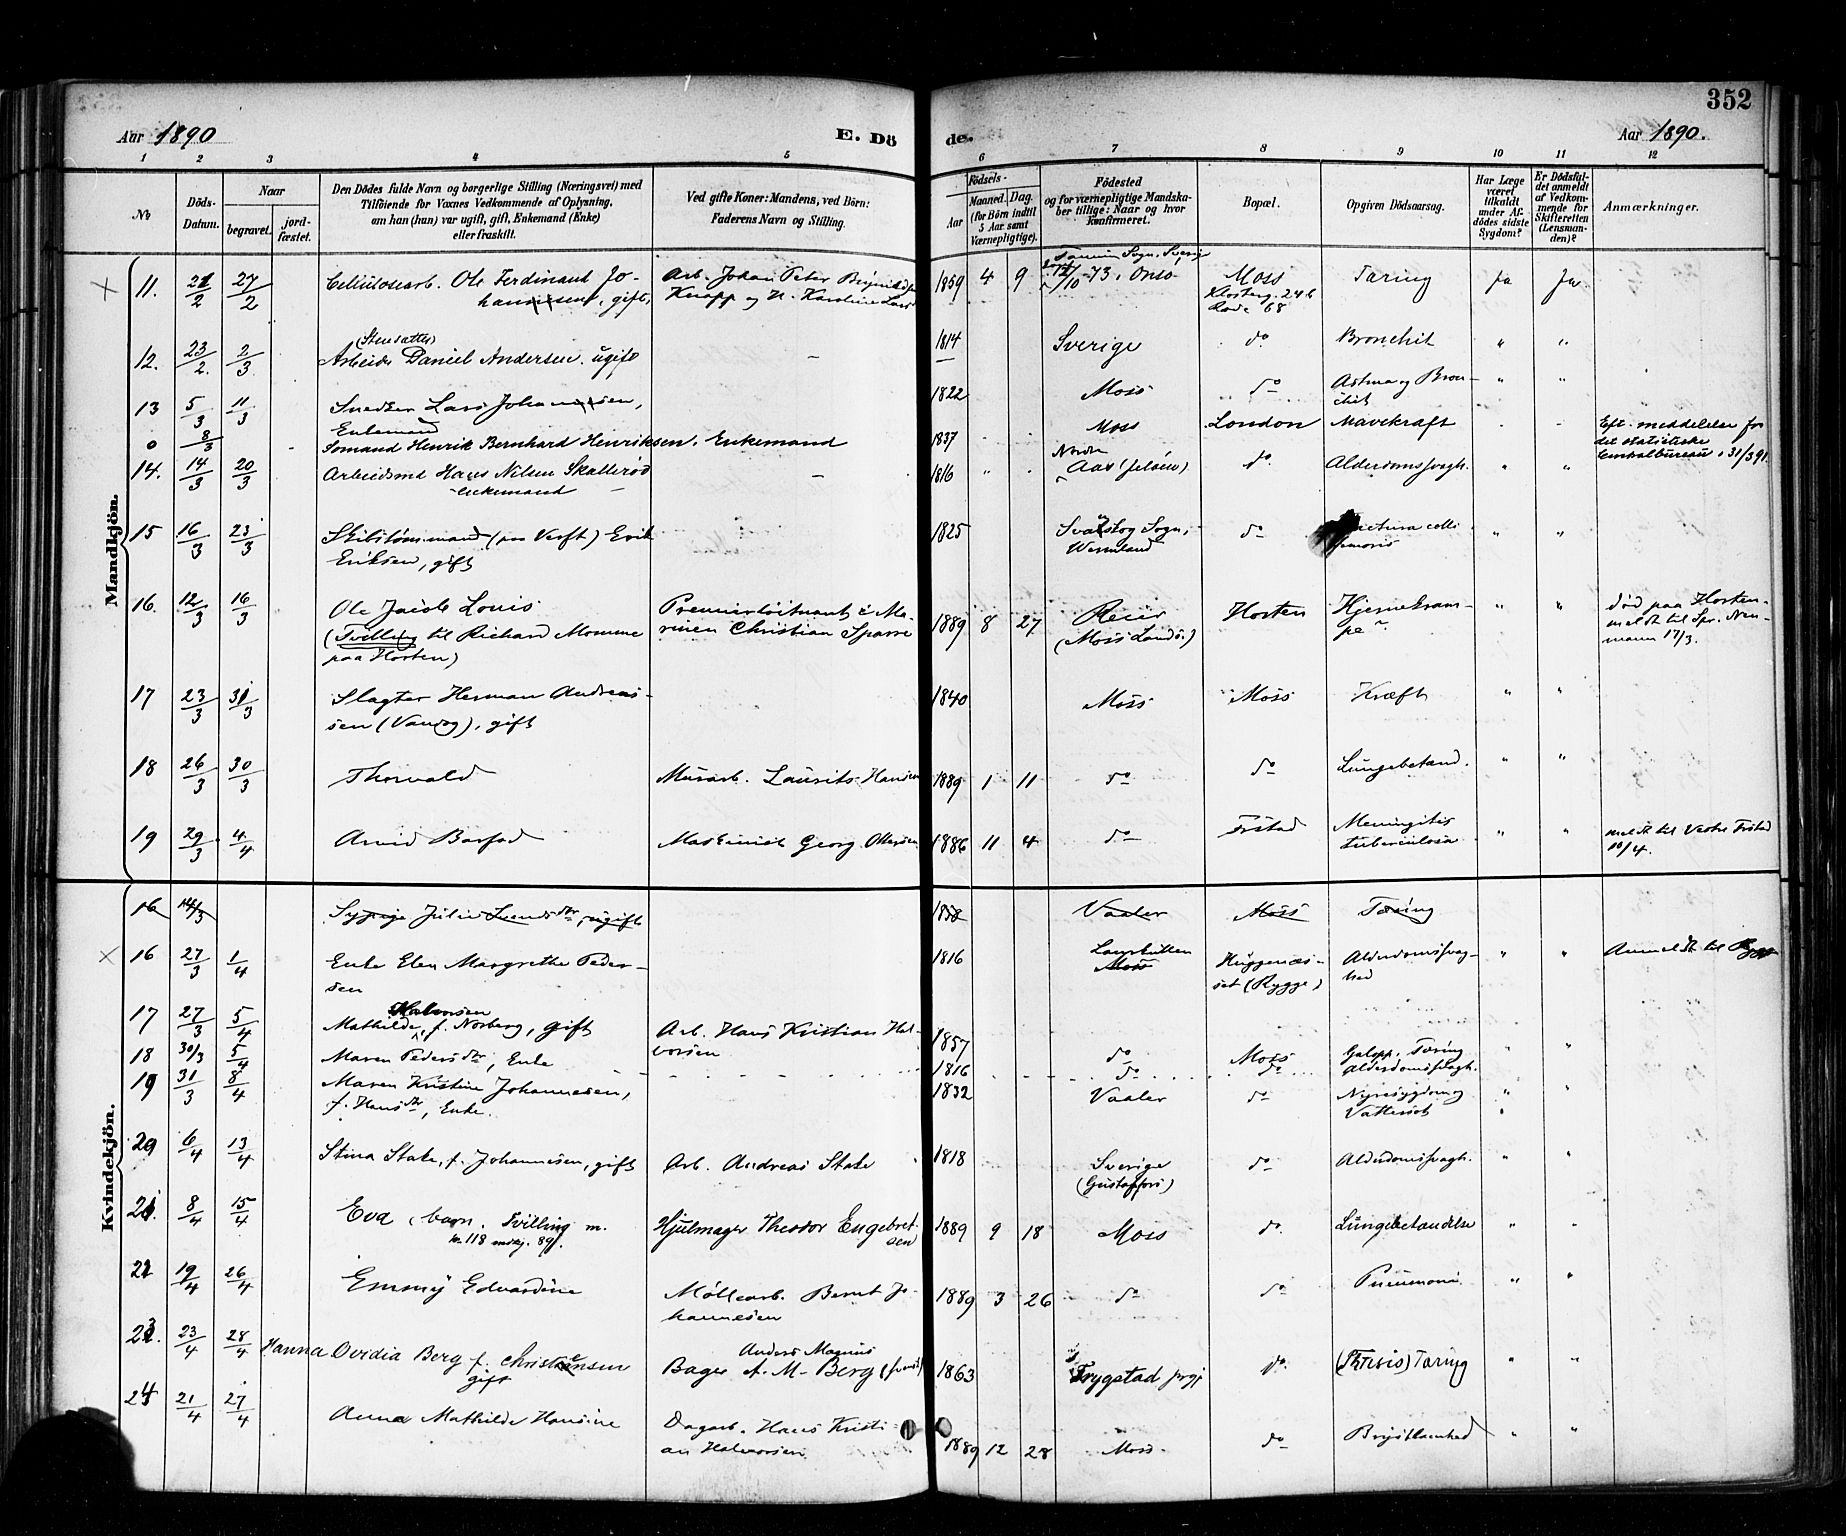 352
Aar 1890 E. Dö de. Aar 1890.
1 2 3 4 5 6 7 8 9 10 11 12
No
Döds-Datum.
Naar
begravet.
jord-fæstet.
Den Dödes fulde Navn og borgerlige Stilling (Næringsvei) med
Tilföiende for Voxnes Vedkommende af Oplysning,
om han (hun) var ugift, gift, Enkemand (Enke)
eller fraskilt.
Ved gifte Koner: Mandens, ved Börn:
Faderens Navn og Stilling.
Födsels-
Aar
Maaned. Dag.
(for Börn indtil
5 Aar samt
Værnepligtige).
Födested
og for værnepligtige Mandska-
ber tillige: Naar og hvor
konfirmeret.
Bopæl.
Opgiven Dödsaarsag.
Har Læge
været
tilkaldt
under Af-
dödes sidste
Sygdom?
Er Dödsfal-
det anmeldt
af Vedkom-
mende for
Skifteretten
(Lensman-
den)?
Anmærkninger.
Mandkjön.
11. 21/2 27/2 Cellulosearb. Ole Ferdinand Jo- Arb. Johan Peter 1859 4 9 Sogn, Sverige -73, Onsö Moss Tæring ja ja
hannesen, gift, Knapp og H. Karoline Lars 246
Rode 68
(Stensatter)
12. 23/2. 2/3 Arbeider Daniel Andersen. ugift - 1814 Sverige do Bronchit " "
13 5/3 11/3 Snedker Lars Johannesen, 1822 Moss do Astma og Bron- " "
Enkemand chit
0 8/3 Sømand Henrik Bernhard Henriksen. Enkemand 1837 Moss London Mavekræft - - Eft. meddelelse fra
det statistiske
Centralbureau i 31/3 91.
14. 14/3 20/3 Arbeidsmd Hans Nilsen Skallerød - 1816 " Nordre Aas (Jeløen) do. Alderdomssvagh. " "
enkemand
15 16/3 23/3 Skibstømmermand (paa Verft) Erik 1825 Svanskog Sogn, do colli " "
Eriksen, gift Wermland femoris
16. 12/3 16/3 Ole Jacob Louis Premierløitnant i Ma- 1889 8 27 Reier Horsten Hjernekram- " " død paa Horten-
(Tvilling til Richard Momme rinen Christian Sparre (Moss Lands.) pe meldt til Spr. Neu-
paa Horten) mann 17/3.
17 23/3 31/3 Slagter Herman Andreas- 1840 Moss Moss Kræft " "
sen (Vanog), gift
18 26/3 30/3 Thorvald Murarb. Laurits Hansen 1889 1 11 do do Lungebetænd. " "
19 29/3 4/4 Arvid Barfod Maskinist Georg Ottersen 1886 11 4 do Frstad Meningitis " " meldt til Vestre Frstad
tuberculosa 10/4.
Kvindekjön.
16 14/3 Sypige Julie Svendsdtr, ugift 1858 Vaaler Moss Tæring
16 27/3 1/4 Enke Elen Margrethe Peder- 1816 Moss Huggenæs- Alderdomssvag- " " Anmeldt til Rygge
sen set (Rygge) hed
Halvorsen
17 27/3 5/4 Mathilde, f. Norberg, gift Arb. Hans Kristian Hal- 1857 do Moss Galopp. Tæring " "
vorsen
18 30/3 5/4 Maren Pedersdtr, Enke 1816 do do Alderdomssvagh.
19 31/3 8/4 Maren Kristine Johannesen, 1832 Vaaler do Nyresygdom og " "
f. Hansdtr, Enke. Vattersot
20 6/4 13/4 Stina Stake, f. Johannesen, gift Arb. Andreas Stake 1818 Sverige do Alderdomssvagh. " "
(Gustafsfors)
21. 8/4 15/4 Eva, barn. Tvilling m. Hjulmager Theodor Engebret- 1889 9 18 Moss do. Lungebetændelse " "
No 118 mdkj. 89. sen
22 19/4 26/4 Emmy Edvardine Møllearb. Bernt Jo- 1889 3 26 do do Pneumoni. " "
hannesen
23. 23/4 28/4 Hanna Ovidia Berg f. Christensen Anders Magnus 1863 Trygstad prgj do. (Phtisis) Tæring " "
gift Bager A. M. Berg
24 21/4 27/4 Anna Mathilde Hansine Dagarb. Hans Kristi- 1889 12 28 Moss do Brystkrankhed " "
an Halvorsen